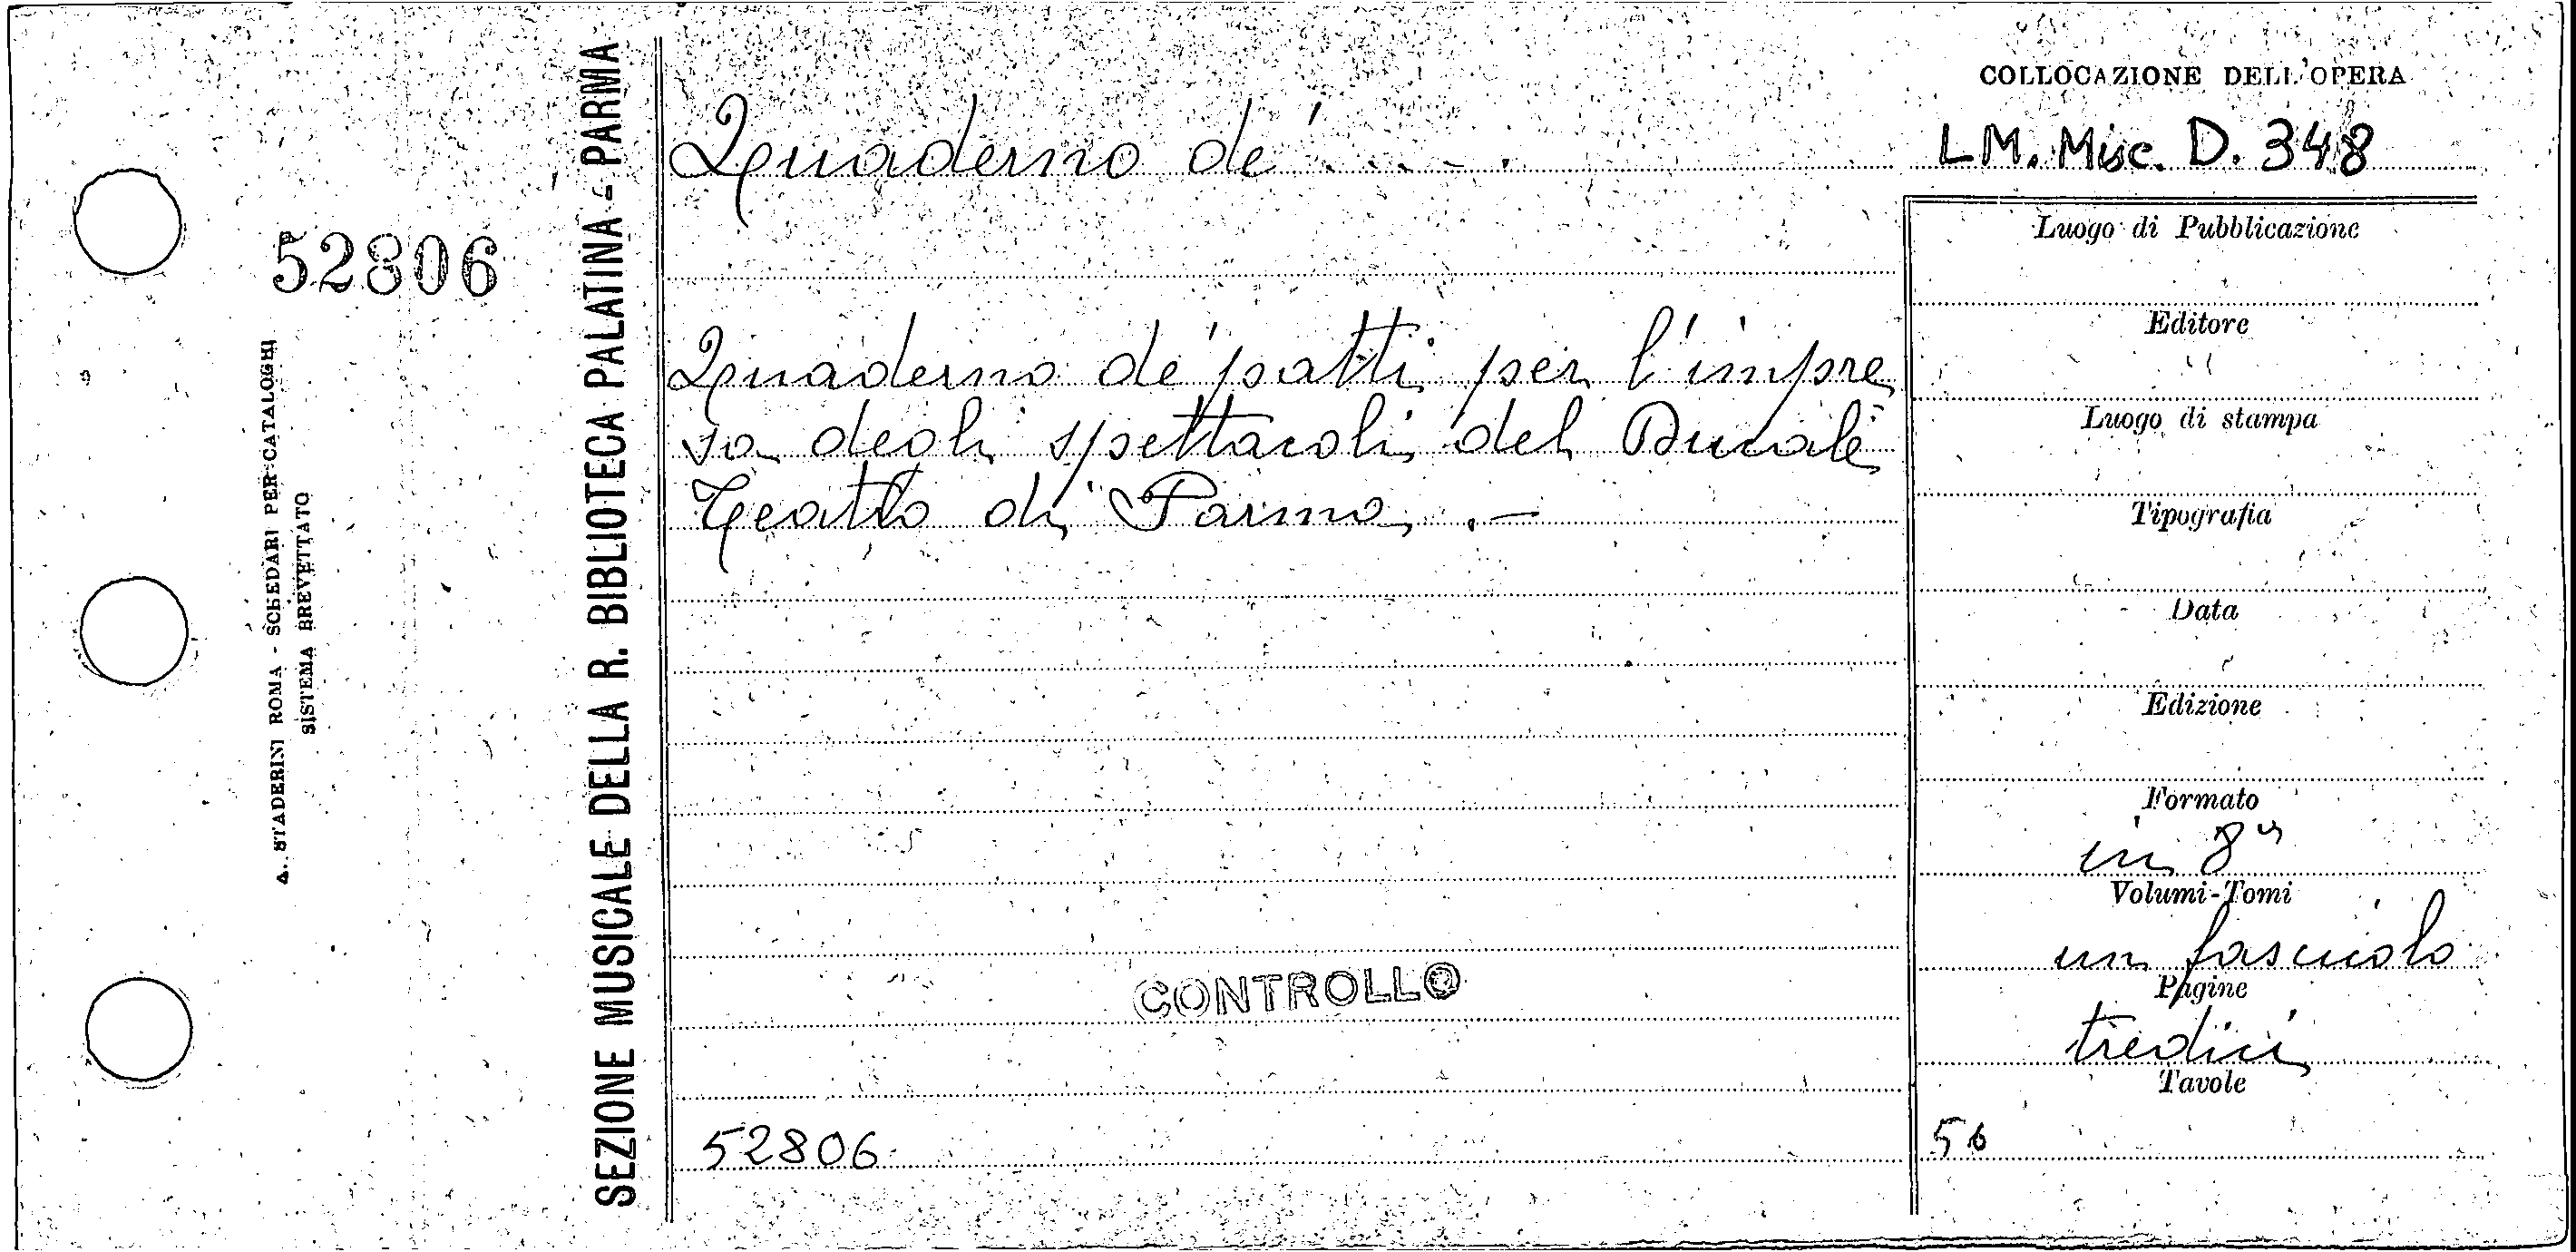 52806
A. STADERINI ROMA - SCHEDARI PER CATALOGHI
SISTEMA BREVETTATO
SEZIONE MUSICALE DELLA R. BIBLIOTECA PALATINA - PARMA
Quaderno de' . . . .
Quaderno de' patti per l'impre
sa degli spettacoli del Ducale
Teatro di Parma .-
CONTROLLO
52806
COLLOCAZIONE DELL'OPERA
LM. Misc. D. 348
Luogo di Pubblicazione
Editore
Luogo di stampa
Tipografia
Data
Edizione
Formato
in 8°
Volumi-Tomi
un fascicolo
Pagine
tredici
Tavole
56